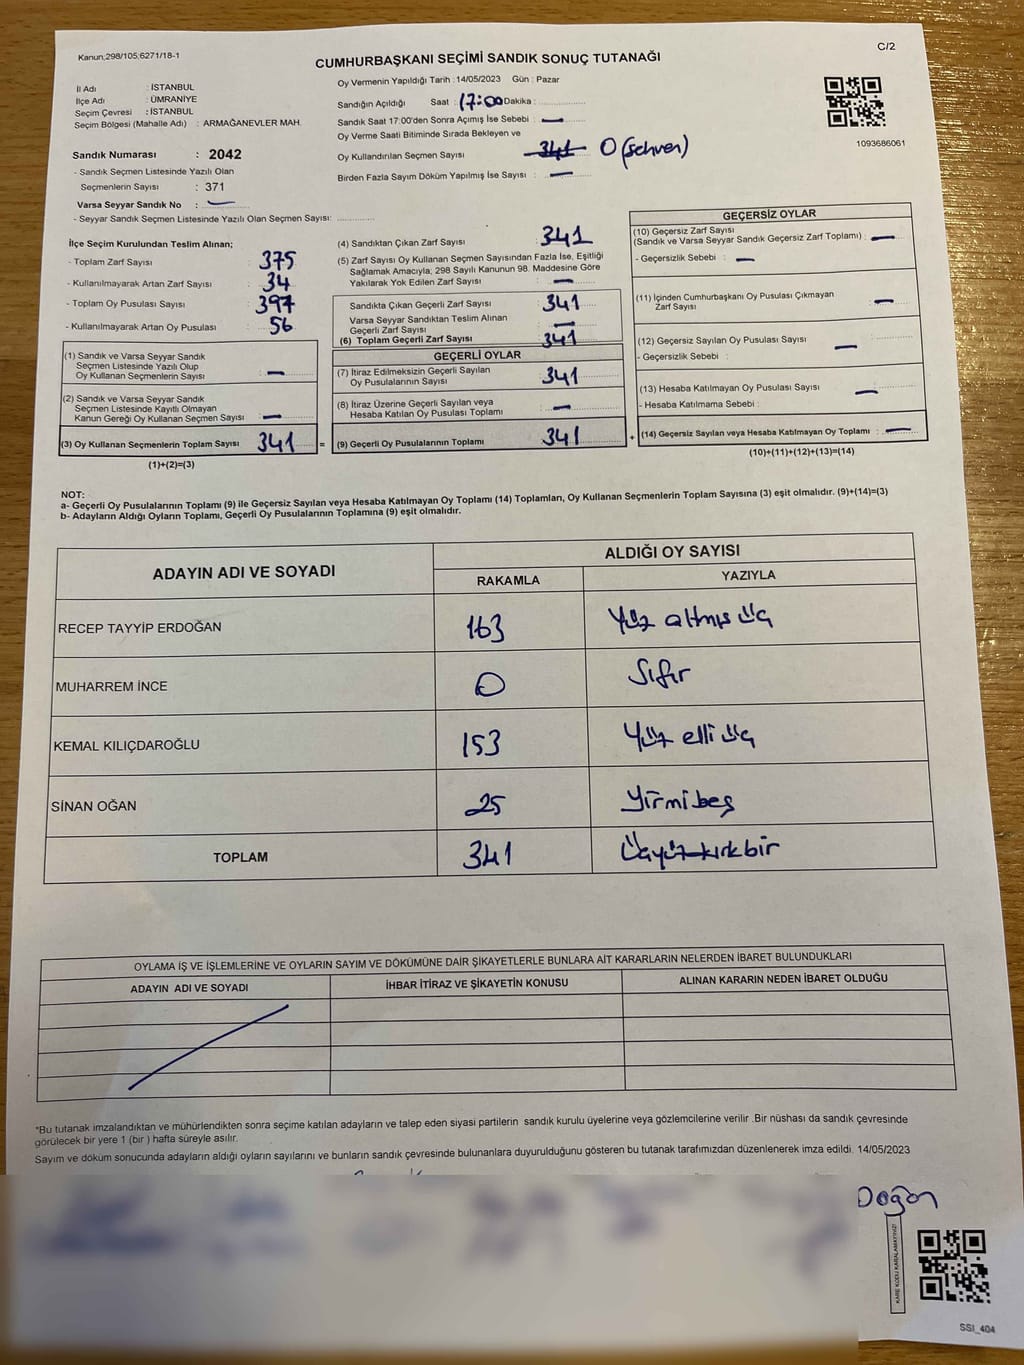 Kanun;298/105;6271/18-1
C/2
CUMHURBAŞKANI SEÇİMİ SANDIK SONUÇ TUTANAĞI
İl Adı : İSTANBUL
İlçe Adı : ÜMRANİYE
Seçim Çevresi : İSTANBUL
Seçim Bölgesi (Mahalle Adı) : ARMAĞANEVLER MAH.
Sandık Numarası : 2042
- Sandık Seçmen Listesinde Yazılı Olan
Seçmenlerin Sayısı : 371
Varsa Seyyar Sandık No : —
- Seyyar Sandık Seçmen Listesinde Yazılı Olan Seçmen Sayısı: ..............
Oy Vermenin Yapıldığı Tarih : 14/05/2023 Gün : Pazar
Sandığın Açıldığı Saat : 17:00 Dakika : ..............
Sandık Saat 17:00'den Sonra Açımış İse Sebebi : —
Oy Verme Saati Bitiminde Sırada Bekleyen ve
Oy Kullandırılan Seçmen Sayısı 341 0
Birden Fazla Sayım Döküm Yapılmış İse Sayısı : —
1093686061
İlçe Seçim Kurulundan Teslim Alınan;
- Toplam Zarf Sayısı 375
- Kullanılmayarak Artan Zarf Sayısı 34
- Toplam Oy Pusulası Sayısı 397
- Kullanılmayarak Artan Oy Pusulası 56
(1) Sandık ve Varsa Seyyar Sandık
Seçmen Listesinde Yazılı Olup
Oy Kullanan Seçmenlerin Sayısı —
(2) Sandık ve Varsa Seyyar Sandık
Seçmen Listesinde Kayıtlı Olmayan
Kanun Gereği Oy Kullanan Seçmen Sayısı —
(3) Oy Kullanan Seçmenlerin Toplam Sayısı 341 =
(1)+(2)=(3)
(4) Sandıktan Çıkan Zarf Sayısı 341
(5) Zarf Sayısı Oy Kullanan Seçmen Sayısından Fazla İse, Eşitliği
Sağlamak Amacıyla; 298 Sayılı Kanunun 98. Maddesine Göre
Yakılarak Yok Edilen Zarf Sayısı : —
Sandıkta Çıkan Geçerli Zarf Sayısı 341
Varsa Seyyar Sandıktan Teslim Alınan
Geçerli Zarf Sayısı —
(6) Toplam Geçerli Zarf Sayısı 341
GEÇERLİ OYLAR
(7) İtiraz Edilmeksizin Geçerli Sayılan
Oy Pusulalarının Sayısı 341
(8) İtiraz Üzerine Geçerli Sayılan veya
Hesaba Katılan Oy Pusulası Toplamı —
(9) Geçerli Oy Pusulalarının Toplamı 341 +
GEÇERSİZ OYLAR
(10) Geçersiz Zarf Sayısı
(Sandık ve Varsa Seyyar Sandık Geçersiz Zarf Toplamı) : —
- Geçersizlik Sebebi : —
(11) İçinden Cumhurbaşkanı Oy Pusulası Çıkmayan
Zarf Sayısı —
(12) Geçersiz Sayılan Oy Pusulası Sayısı —
- Geçersizlik Sebebi :
(13) Hesaba Katılmayan Oy Pusulası Sayısı —
- Hesaba Katılmama Sebebi :
(14) Geçersiz Sayılan veya Hesaba Katılmayan Oy Toplamı : —
(10)+(11)+(12)+(13)=(14)
NOT:
a- Geçerli Oy Pusulalarının Toplamı (9) ile Geçersiz Sayılan veya Hesaba Katılmayan Oy Toplamı (14) Toplamları, Oy Kullanan Seçmenlerin Toplam Sayısına (3) eşit olmalıdır. (9)+(14)=(3)
b- Adayların Aldığı Oyların Toplamı, Geçerli Oy Pusulalarının Toplamına (9) eşit olmalıdır.
ADAYIN ADI VE SOYADI
ALDIĞI OY SAYISI
RAKAMLA YAZIYLA
RECEP TAYYİP ERDOĞAN 163 Yüz altmış üç
MUHARREM İNCE 0 Sıfır
KEMAL KILIÇDAROĞLU 153 Yüz elli üç
SİNAN OĞAN 25 Yirmibeş
TOPLAM 341 Üçyüzkırkbir
OYLAMA İŞ VE İŞLEMLERİNE VE OYLARIN SAYIM VE DÖKÜMÜNE DAİR ŞİKAYETLERLE BUNLARA AİT KARARLARIN NELERDEN İBARET BULUNDUKLARI
ADAYIN ADI VE SOYADI İHBAR İTİRAZ VE ŞİKAYETİN KONUSU ALINAN KARARIN NEDEN İBARET OLDUĞU
*Bu tutanak imzalandıktan ve mühürlendikten sonra seçime katılan adayların ve talep eden siyasi partilerin sandık kurulu üyelerine veya gözlemcilerine verilir .Bir nüshası da sandık çevresinde
görülecek bir yere 1 (bir ) hafta süreyle asılır.
Sayım ve döküm sonucunda adayların aldığı oyların sayılarını ve bunların sandık çevresinde bulunanlara duyurulduğunu gösteren bu tutanak tarafımızdan düzenlenerek imza edildi. 14/05/2023
Doğan
KARE KODU KARALAMAYINIZ!
SSI_404